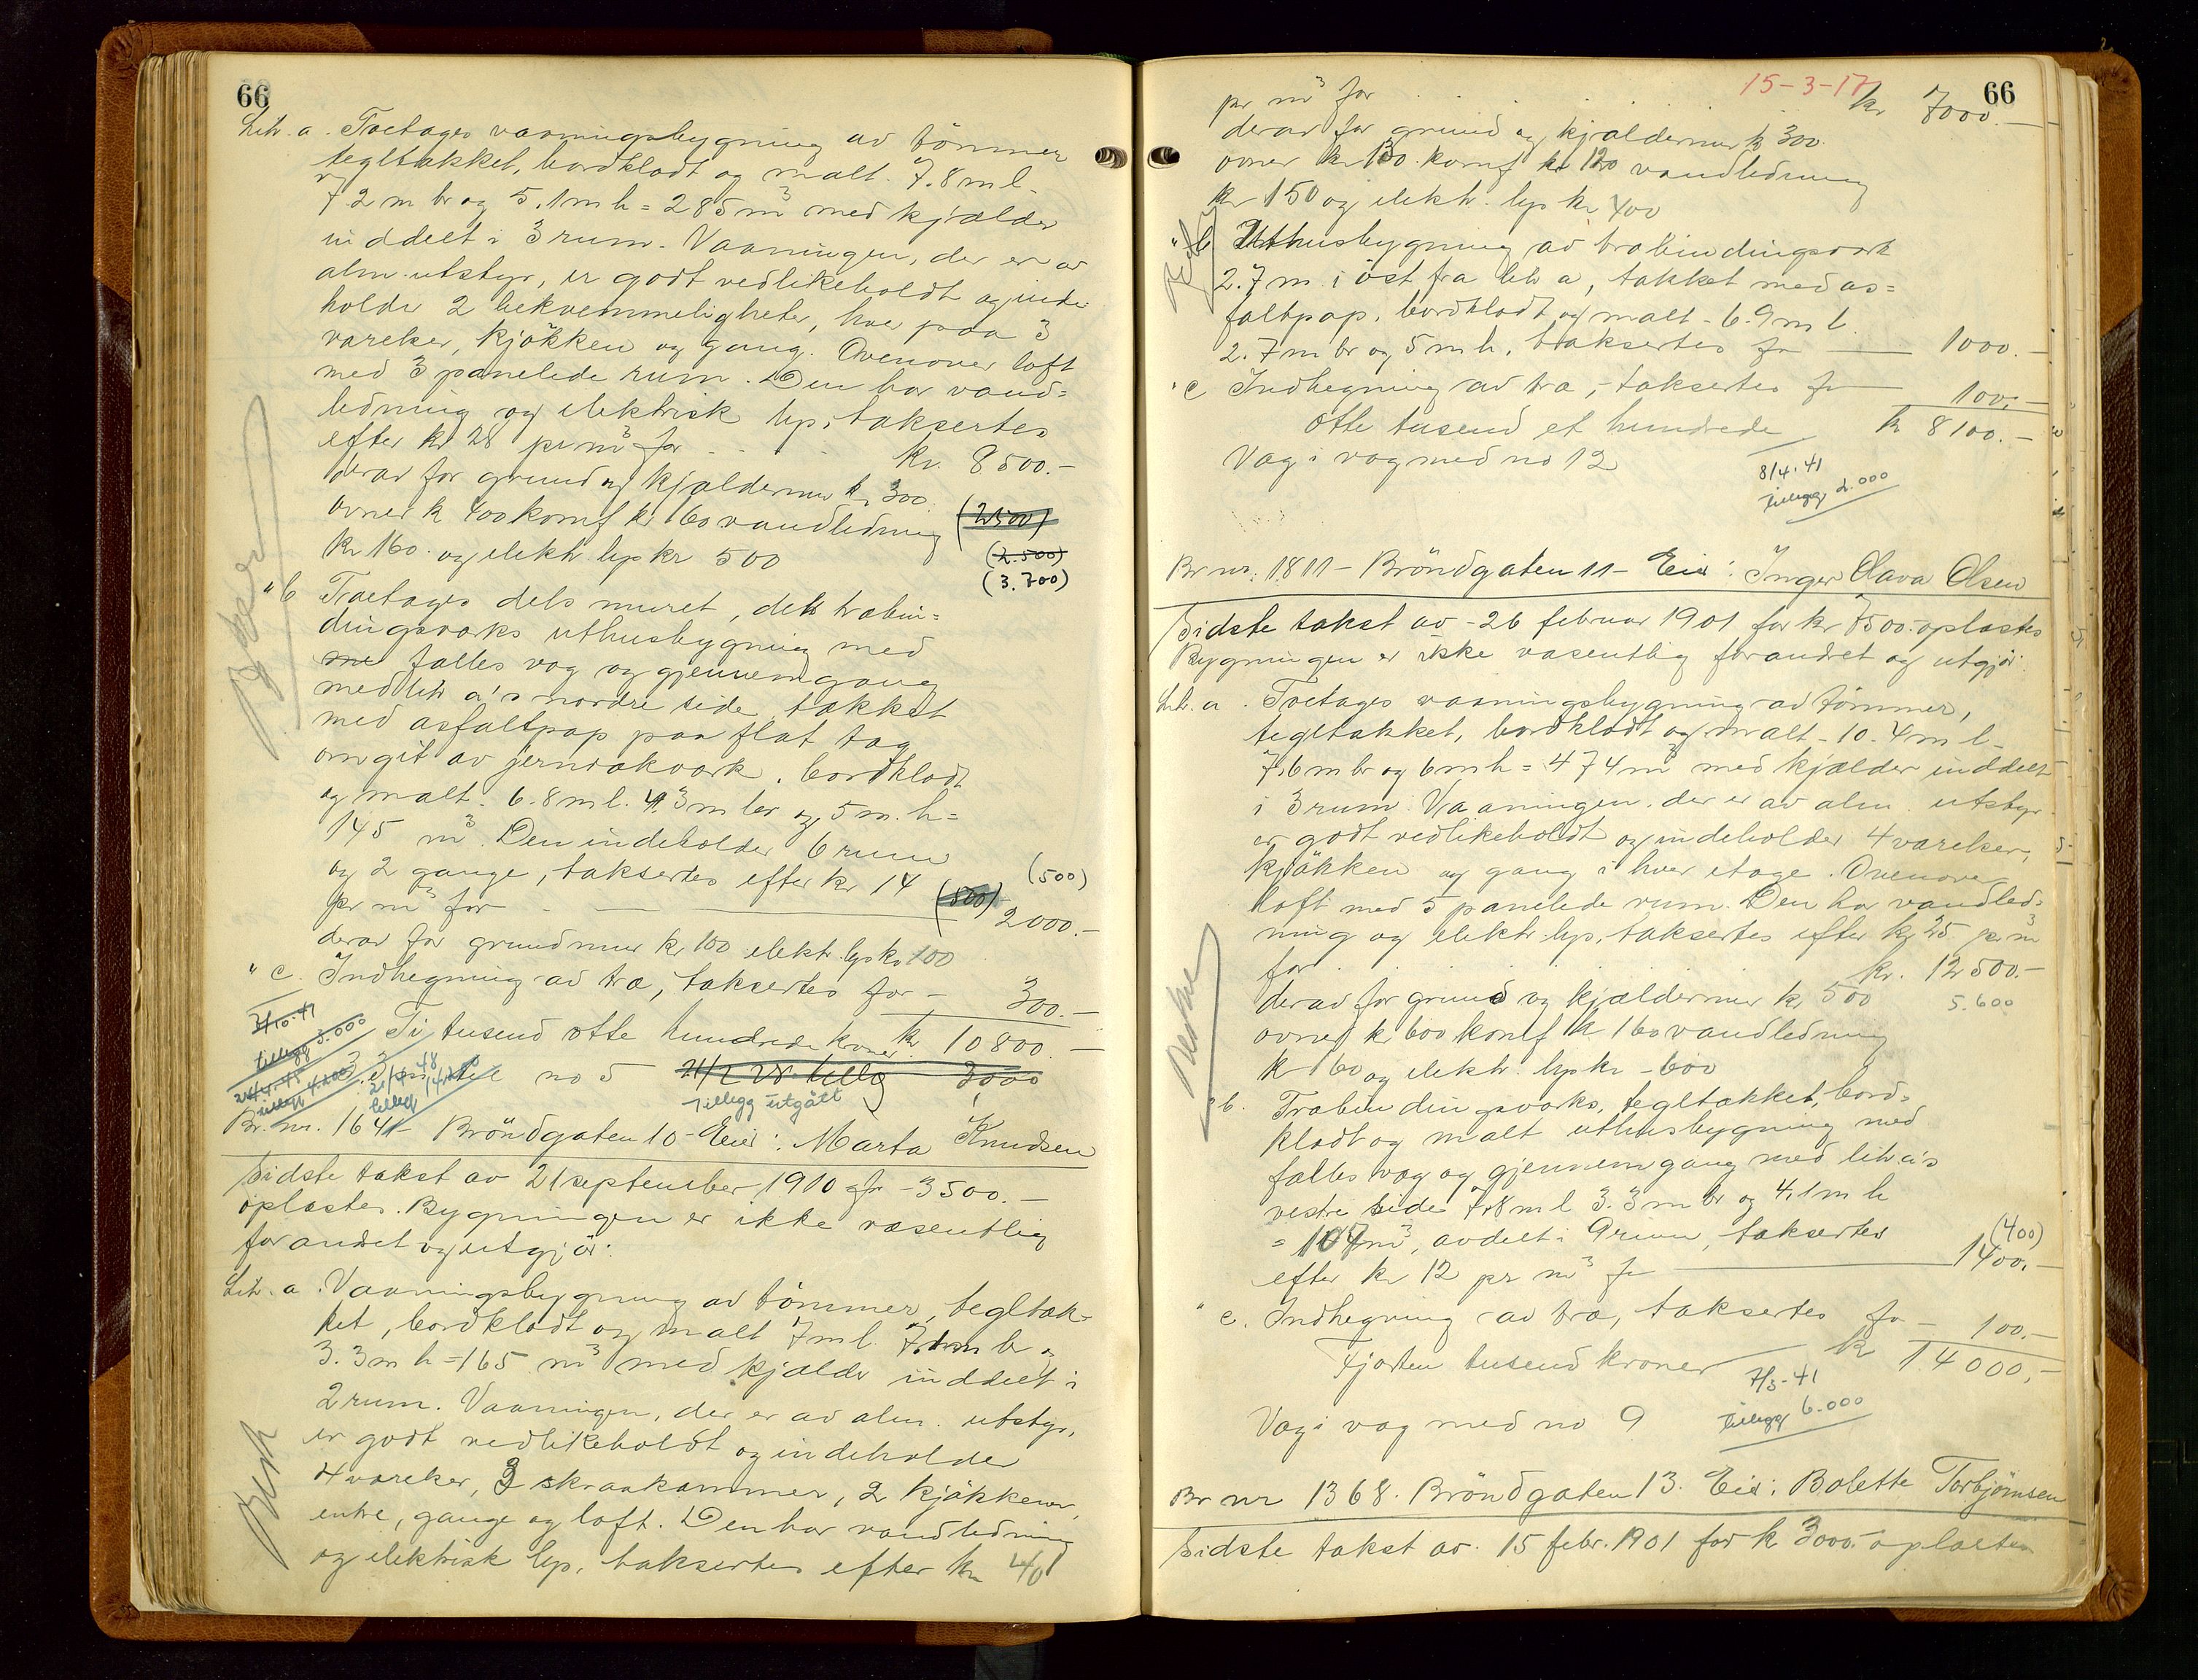 66
Litr. a. Toetages vaaningsbygning av tömmer
tegltækket, bordklædt og malt. 7.8 m l.
7.2 m br og 5.1 m h = 285 m³ med kjælder
inddelt i 3 rum. Vaaningen, der er av
alm. utstyr, er godt vedlikeholdt og inde-
holder 2 bekvemmeligheter, hver paa 3
værelser, kjökken og gang. Ovenover loft
med 3 panelede rum. Den har vand=
ledning og elektrisk lys, taksertes
efter kr 28 pr m³ for kr. 8500.-
derav for grund og kjældermur kr 300.
ovner kr 400 komf kr 160 vandledning (2500)
kr 160. og elektr lys kr 500 (2.500)
(3.700)
" b Toetages dels muret, dels træbin=
dingsværks uthusbygning med
fælles væg og gjennemgang
med litr a's nordre side, tækket
med asfaltpap paa flat tag
omgit av jernrækværk, bordklædt
og malt. 6.8 m l. 4.3 m br og 5 m. h =
145 m³. Den indeholder 6 rum
og 2 gange, taksertes efter kr 14 (500)
pr m³ for (500) 2000.-
derav for grundmur kr 100 elektr. lys kr 100
" c. Indhegning av træ, taksertes for - 300.-
Ti tusend otte hundrede kroner kr 10800.-
tillegg 3.000
tillegg 4.200
tillegg
no 5 tillegg 3000
Tillegg utgått
Br. nr. 1641 - Bröndgaten 10 - Eier: Marta Knudsen
Sidste takst av 21 september 1910 for - 3500.-
oplæstes. Bygningen er ikke væsentlig
forandret og utgjör:
Litr. a. Vaaningsbygning av tömmer, tegltæk-
ket, bordklædt og malt 7 m l. 7.1 m br og
3.3 m h = 165 m³ med kjælder inddelt i
2 rum. Vaaningen, der er av alm. utstyr,
er godt vedlikeholdt og indeholder
4 værelser, 3 skraakammer, 2 kjökkener,
entre, gange og loft. Den har vandledning
og elektrisk lys, taksertes efter kr 40
15-3-17
66
pr m³ for kr 7000.-
derav for grund og kjældermur kr 300.
ovner kr 130. komf kr 120 vandledning
kr 150 og elektr. lys kr 400
" b Uthusbygning av træbindingsværk
2.7 m i öst fra litr a, tækket med as=
faltpap, bordklædt og malt - 6.9 m l.
2.7 m br og 5 m h, taksertes for 1000.-
" c Indhegning av træ, taksertes for 100.-
Otte tusend et hundrede kr 8100.-
Væg i væg med no 12
8/4.41
Tillegg 2.000
Br nr. 1811 - Bröndgaten 11 - Eier: Inger Olava Olsen
Sidste takst av - 26 februar 1901 for kr 7500.- oplæstes
Bygningen er ikke væsentlig forandret og utgjör:
Litr. a. Toetages vaaningsbygning av tömmer,
tegltækket, bordklædt og malt - 10.4 m l.
7.6 m br og 6 m h = 474 m³ med kjælder inddelt
i 3 rum. Vaaningen, der er av alm. utstyr
er godt vedlikeholdt og indeholder 4 værelser,
kjökken og gang i hver etage. Ovenover
loft med 5 panelede rum. Den har vandled-
ning og elektr. lys, taksertes efter kr 25 pr m³
for kr. 12500.-
derav for grund og kjældermur kr 500 5.600
ovner kr 600 komf kr 160 vandledning
kr 160 og elektr. lys kr - 600
" b. Træbindingsværks, tegltækket, bord=
klædt og malt uthusbygning med
fælles væg og gjennemgang med litr a's
vestre side 7.8 m l 3.3 m br og 4.1 m h
= 107 m³, avdelt i 9 rum, taksertes (400)
efter kr 12 pr m³ for 1400.-
" c. Indhegning av træ, taksertes for - 100.-
Fjorten tusend kroner kr 14000.-
7/3-41
Væg i væg med no 9 Tillegg 6.000
Br nr 1368. Bröndgaten 13. Eier: Bolette Torbjörnsen
Sidste takst av. 15 febr. 1901 for kr 3000.- oplæstes